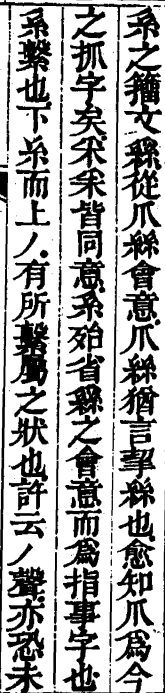 系之籀文𦃟從爪絲會意爪絲猶言挐絲也愈知爪爲今
之抓字矣釆采皆同意系殆省𦃟之會意而爲指事字也
系繫也下糸而上丿有所繫屬之狀也許云丿聲亦恐未